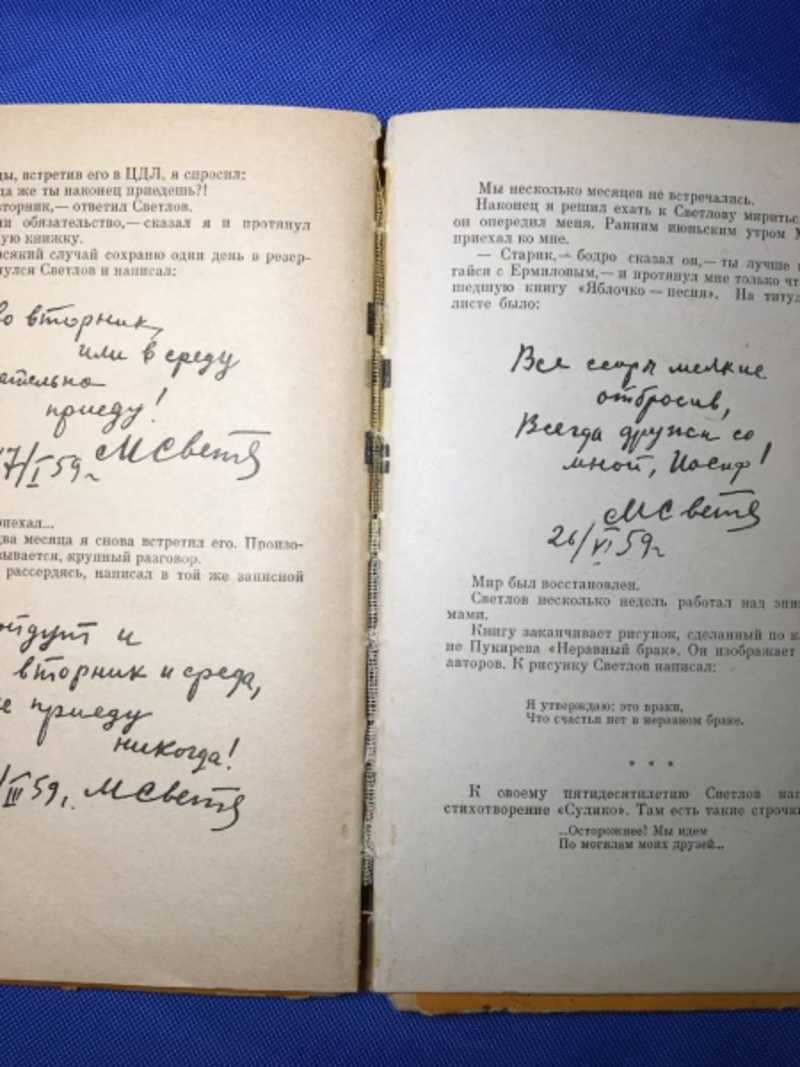 ды, встретив его в ЦДЛ, я спросил:
да же ты наконец приедешь?!
вторник,— ответил Светлов.
ми обязательство,— сказал я и протянул
ную книжку.
всякий случай сохраню один день в резер-
нулся Светлов и написал:
во вторник,
или в среду
ательно
приеду!
17/I 59г МСветл
риехал...
два месяца я снова встретил его. Произо-
зывается, крупный разговор.
рассердясь, написал в той же записной
ойдут и
вторник и среда,
не приеду
никогда!
/III 59г. МСветл
Мы несколько месяцев не встречались.
Наконец я решил ехать к Светлову мириться
он опередил меня. Ранним июньским утром М
приехал ко мне.
— Старик,— бодро сказал он,— ты лучше
гайся с Ермиловым,— и протянул мне только чт
шедшую книгу «Яблочко — песня». На титул
листе было:
Все ссоры мелкие
отбросив,
Всегда дружи со
мной, Иосиф!
МСветл
26/VI 59г
Мир был восстановлен.
Светлов несколько недель работал над эпиг
мами.
Книгу заканчивает рисунок, сделанный по к
не Пукирева «Неравный брак». Он изображает
авторов. К рисунку Светлов написал:
Я утверждаю: это враки,
Что счастья нет в неравном браке.
* * *
К своему пятидесятилетию Светлов нап
стихотворение «Сулико». Там есть такие строчк
...Осторожнее! Мы идем
По могилам моих друзей...